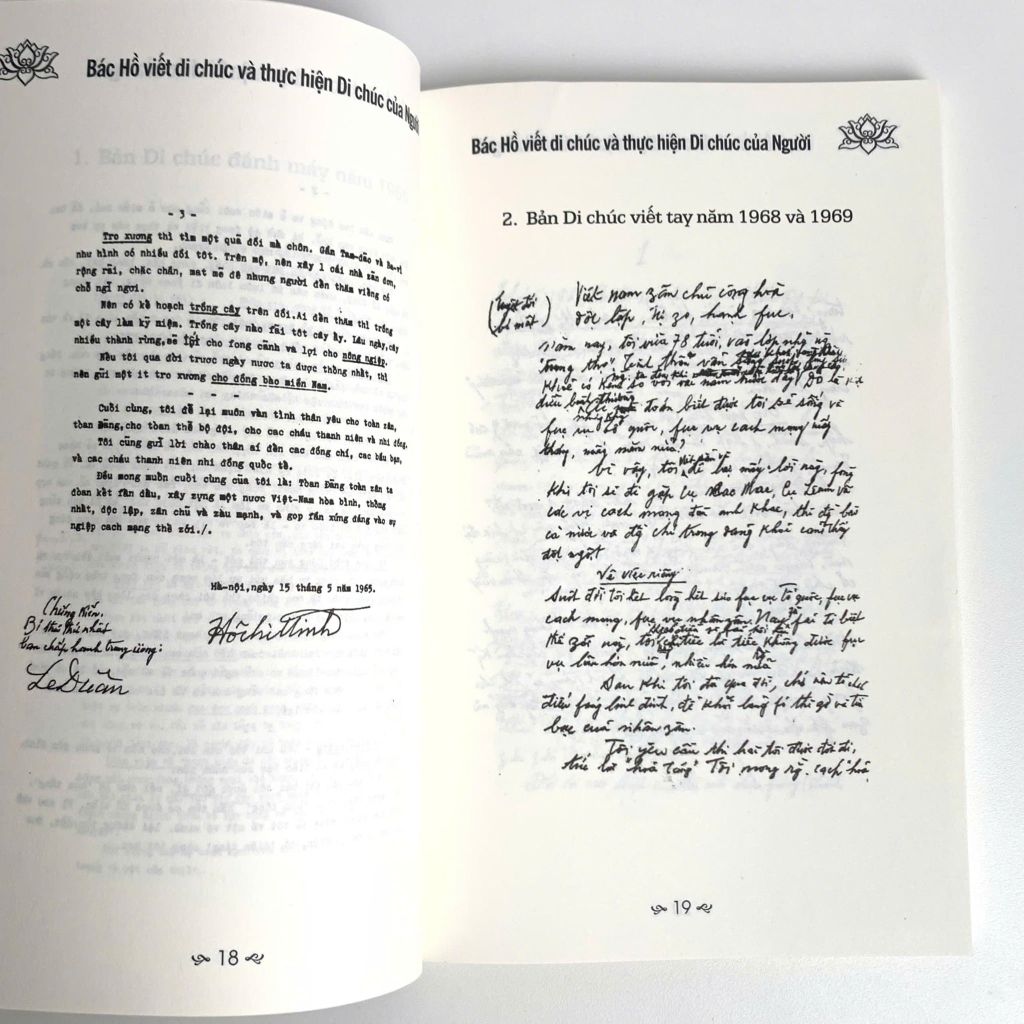 Bác Hồ viết di chúc và thực hiện Di chúc của Người
- 3 -
Tro xương thì tìm một quả đồi mà chôn. Gần Tam-đảo và Ba-vì
như hình có nhiều đồi tốt. Trên mộ, nên xây 1 cái nhà zản đơn,
rộng rãi, chắc chắn, mat mẻ để nhưng người đến thăm viếng có
chỗ ngỉ ngơi.
Nên có kế hoạch trồng cây trên đồi. Ai đến thăm thì trồng
một cây làm kỷ niệm. Trồng cây nào fải tốt cây ấy. Lâu ngày, cây
nhiều thành rừng, sẽ tốt cho fong cảnh và lợi cho nông ngiệp.
Nếu tôi qua đời trươc ngày nươc ta được thống nhất, thì
nên gửi một ít tro xương cho đồng bào miền Nam.
- - -
Cuối cùng, tôi để lại muôn vàn tình thân yêu cho toàn zân,
tòan Đảng, cho tòan thể bộ đội, cho các cháu thanh niên và nhi đồng.
Tôi cũng gửi lời chào thân ái đến các đồng chí, các bầu bạn,
và các cháu thanh niên nhi đồng quốc tế.
Đều mong muốn cuối cùng của tôi là: Tòan Đảng toàn zân ta
đòan kết fấn đấu, xây zựng một nươc Việt-Nam hòa bình, thống
nhất, độc lập, zân chủ và zàu mạnh, và gop fần xứng đáng vào sự
ngiệp cách mạng thế zới./.
Hà-nội, ngày 15 tháng 5 năm 1965.
Chứng kiến.
Bí thư thứ nhất
ban chấp hành trung ương:
Hồ Chí Minh
Lê Duẩn
18
Bác Hồ viết di chúc và thực hiện Di chúc của Người
2. Bản Di chúc viết tay năm 1968 và 1969
(tuyệt đối
bí mật)
Việt nam zân chủ cộng hoà
độc lập, tự zo, hạnh fuc.
năm nay, tôi vừa 78 tuổi, vào lớp
"trung thọ". Tinh thần vẫn
so với vài năm trước đây. Đó là
điều bình thường
đoán biết được tôi sẽ sống và
fục vụ tổ quốc, fục vụ cach mạng mấy
tháng, mấy năm nữa?
Vì vậy, tôi để lại mấy lời này, fòng
khi tôi sẽ đi gặp cụ Các Mác, cụ Lênin và
các vị cach mạng đàn anh khac, thì đg bào
cả nước và đg chí trong đảng khỏi cảm thấy
đột ngột
Về việc riêng
Suốt đời tôi hết lòng hết sức fục vụ tổ quốc, fục vụ
cach mạng, fục vụ nhân zân. Nay fải từ biệt
thế zới này, tôi tiếc là tiếc không được fục
vụ lâu hơn nữa, nhiều hơn nữa
Sau khi tôi đã qua đời, chớ nên tổ chức
điếu fúng linh đình, để khỏi lãng fí thì zờ và tiền
bạc của nhân zân.
Tôi yêu cầu thi hài tôi được đốt đi,
tức là "hoả táng" Tôi mong rằng cach hoả
19